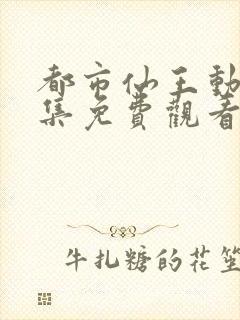 都市仙王動
集免費觀看
牛扎糖的花笙